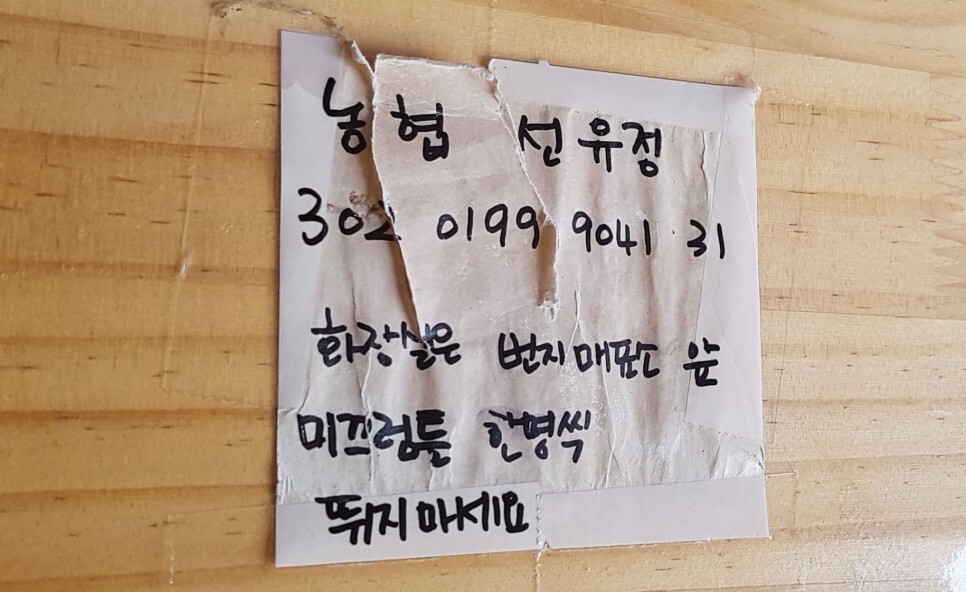 농협 선유정
302 0199 9041 31
화장실은 번지매표소 앞
미끄럼틀 한명씩
뛰지마세요